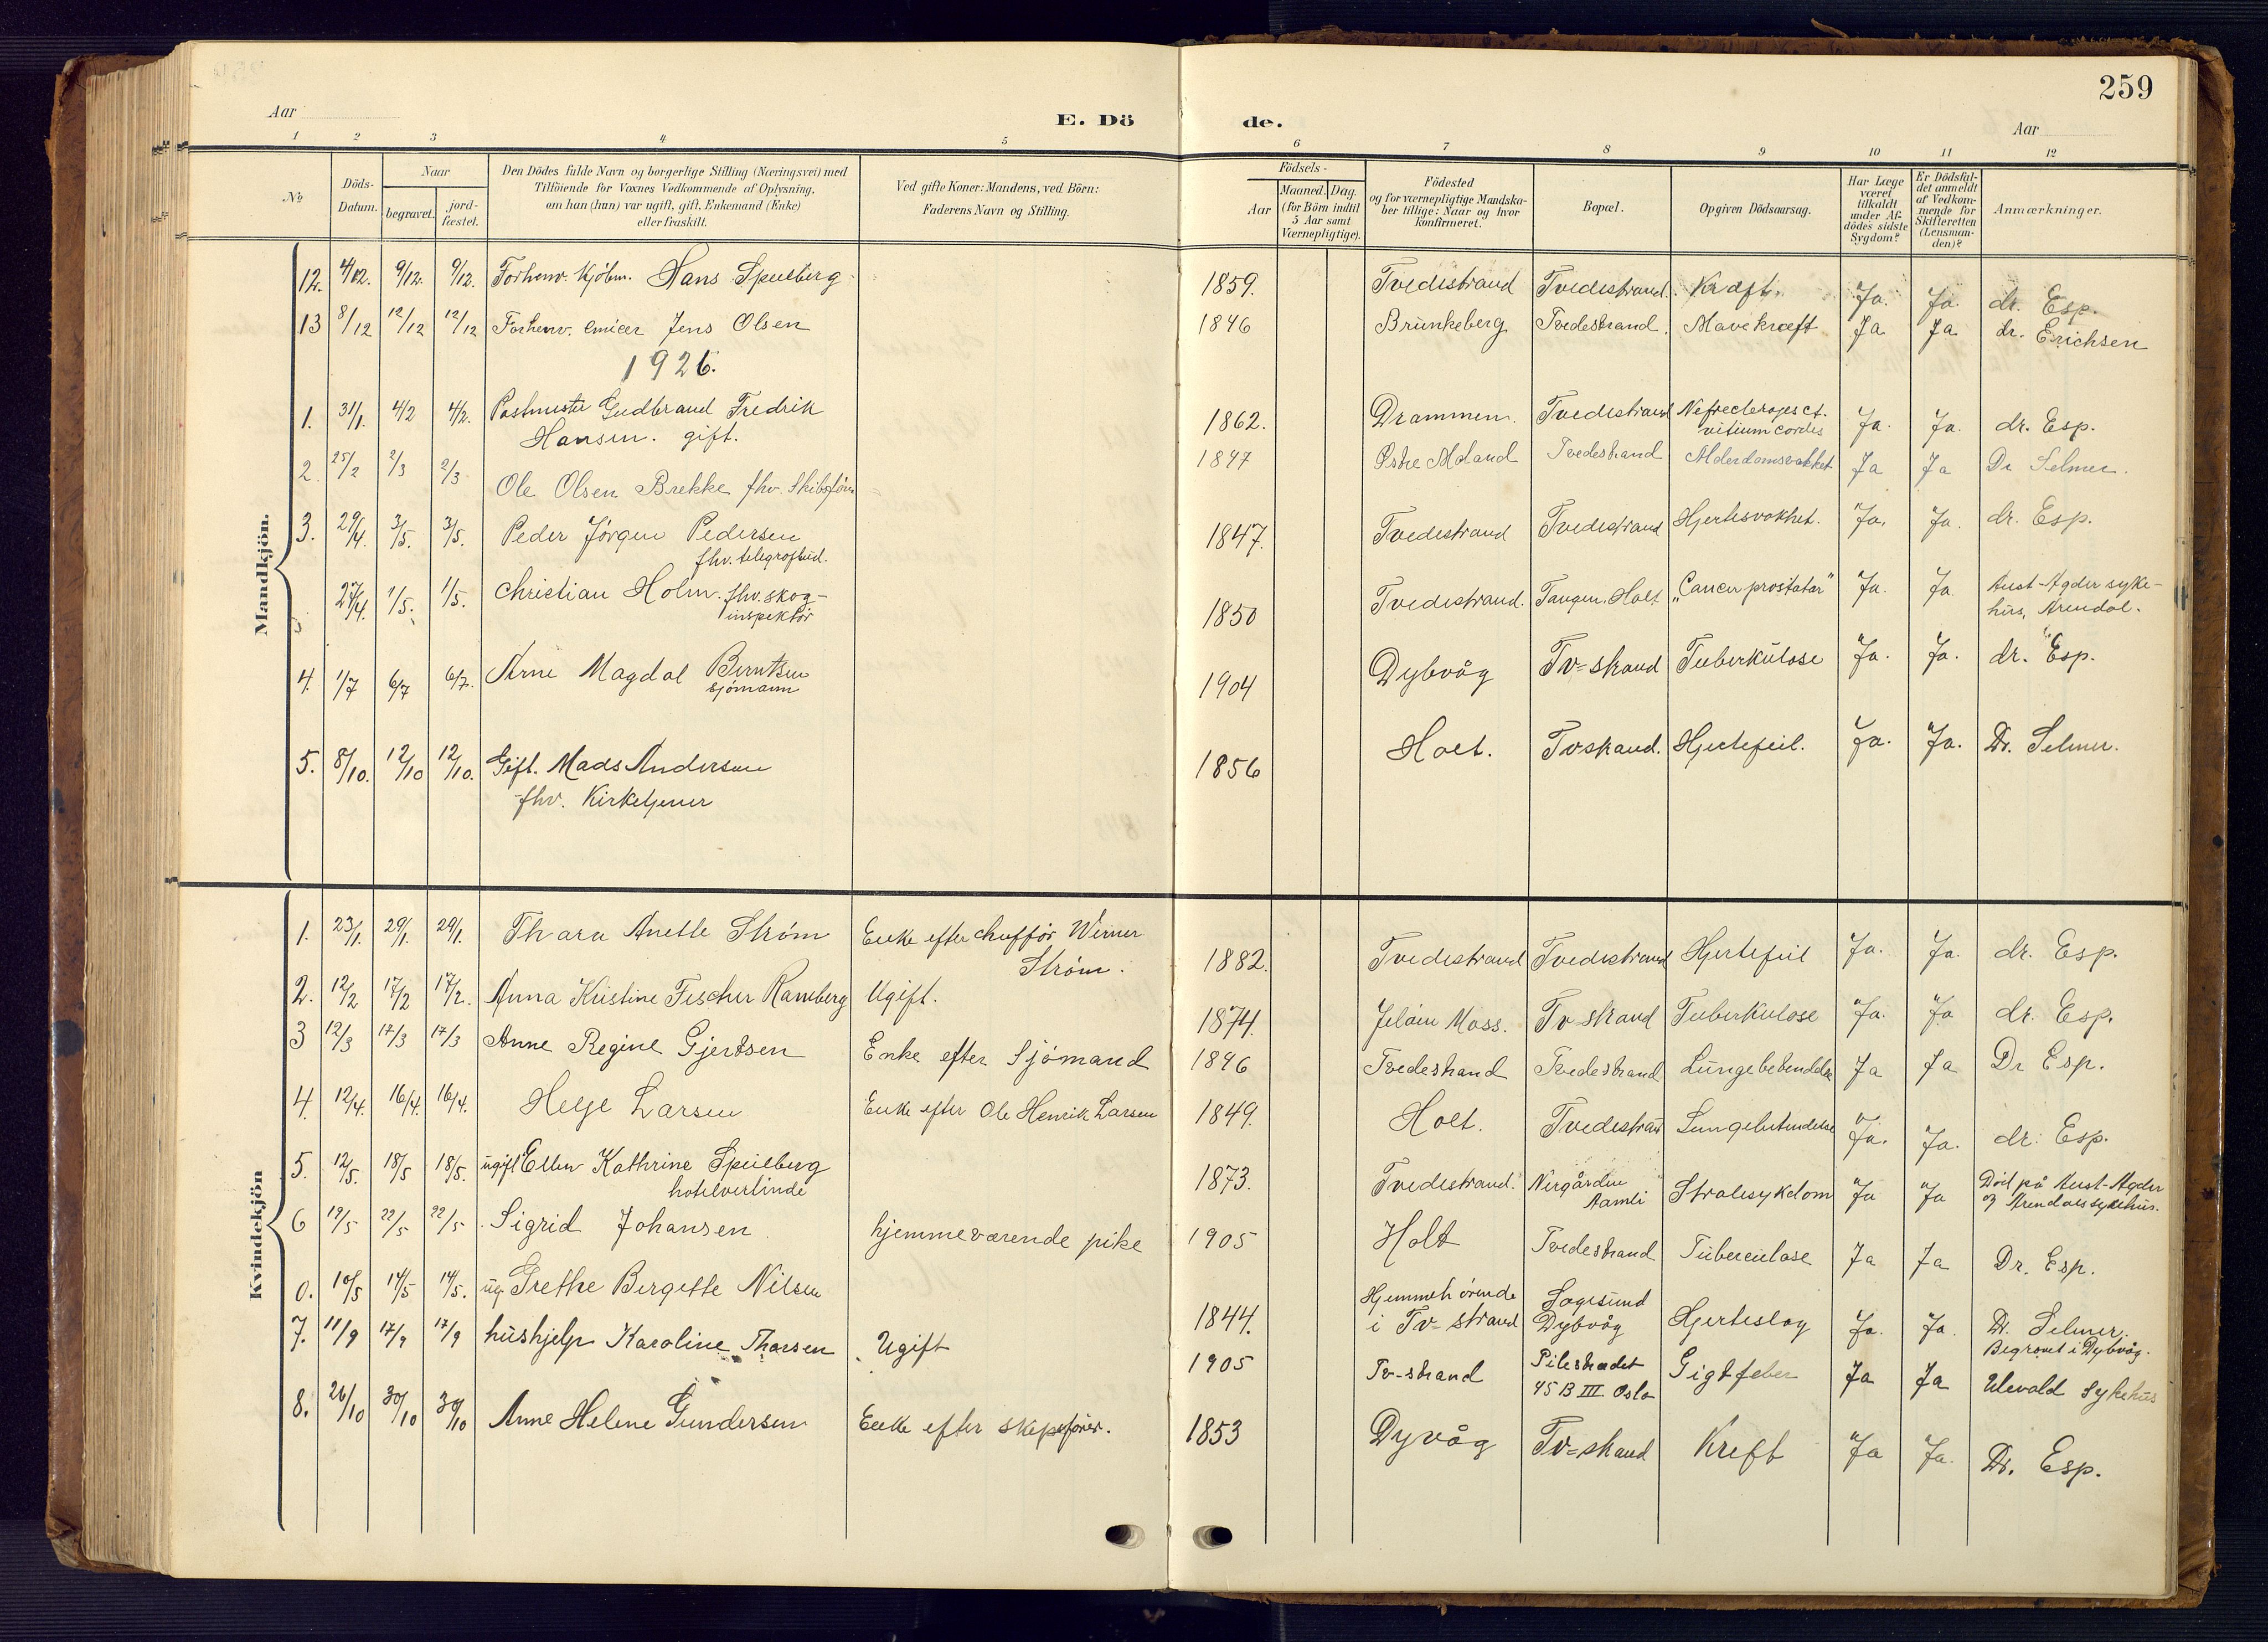 259
Aar
E. Dö
de.
Aar
1 2 3 4 5 6 7 8 9 10 11 12
No
Döds-
Datum.
Naar
begravet.
jord-
fæstet.
Den Dödes fulde Navn og borgerlige Stilling (Næringsvei) med
Tilföiende for Voxnes Vedkommende af Oplysning,
om han (hun) var ugift, gift, Enkemand (Enke)
eller fraskilt.
Ved gifte Koner: Mandens, ved Börn:
Faderens Navn og Stilling.
Födsels-
Aar
Maaned. Dag.
(for Börn indtil
5 Aar samt
Værnepligtige).
Födested
og for værnepligtige Mandska-
ber tillige: Naar og hvor
konfirmeret.
Bopæl.
Opgiven Dödsaarsag.
Har Læge
været
tilkaldt
under Af-
dödes sidste
Sygdom?
Er Dödsfal-
det anmeldt
af Vedkom-
mende for
Skifteretten
(Lensman-
den)?
Anmærkninger.
Mandkjön.
12. 4/12. 9/12. 9/12. Forhenv. Kjøbm. Hans Spulberg 1859. Tvedestrand Tvedestrand. Kræft. Ja. Ja. dr. Esp.
13 8/12 12/12 12/12 Forhenv. Jens Olsen 1846 Brunkeberg Tvedestrand. Mavekræft Ja Ja dr. Erichsen
1926.
1. 31/1. 4/2 4/2. Postmester Gudbrand Fredrik
Hansen. gift. 1862. Drammen. Tvedestrand vitium cordis Ja. Ja. dr. Esp.
2. 25/2 2/3 2/3 Ole Olsen Brekke fhv. Skibsfører 1847 Østre Moland Tvedestrand Alderdomsvakhet Ja Ja Dr Selmer.
3. 29/4. 3/5. 3/5. Peder Jörgen Pedersen
fhv. telegrafbud. 1847. Tvedestrand Tvedestrand Hjertesvakhet. Ja. Ja. dr. Esp.
27/4. 1/5. 1/5. Christian Holm. fhv. skog-
inspektör 1850 Tvedestrand. Tangen. Holt "Cancer prostatar" Ja. Ja Aust-Agder syke-
hus, Arendal.
4. 1/7 6/7 6/7. Arne Magdal Berntsen
sjömann 1904 Dybvåg Tv=strand Tuberkulose Ja. Ja. dr. Esp.
5. 8/10. 12/10 12/10. Gift. Mads Andersen
fhv. Kirketjener 1856 Holt. Tvstrand. Hjertefeil. Ja. Ja. Dr. Selmer.
Kvindekjön
1. 23/1. 29/1. 29/1. Thara Anette Ström Enke efter chufför Werner
Ström. 1882. Tvedestrand Tvedestrand Hjertefeil Ja. Ja. dr. Esp.
2. 12/2 17/2 17/2. Anna Kristine Fischer Ramberg Ugift. 1874. Jeløin Moss. Tv-strand Tuberkulose Ja. Ja dr. Esp.
3 12/3 17/3 17/3 Anne Regine Gjertsen Enke efter Sjömand 1846 Tvedestrand Tvedestrand Lungebetendelse Ja Ja Dr Esp.
4. 12/4. 16/4. 16/4. Helje Larsen Enke efter Ole Henrik Larsen 1849. Holt. Tvedestrand Lungebetendelse Ja. Ja. dr. Esp.
5. 12/5. 18/5 18/5. ugift Ellen Kathrine Speilberg
hotelvertinde 1873. Tvedestrand. Nergården
Aamli Stralesykdom Ja Ja Död på Aust-Agder
og Arendals sykehus.
6 19/5 22/5 22/5 Sigrid Johansen hjemmeværende pike 1905 Holt Tvedestrand Tuberculose Ja Ja Dr. Esp.
0. 10/5 14/5 14/5. ug. Grethe Birgitte Nilsen 1844. Hjemmehörende
i Tv-strand Sagesund
Dybvåg Hjerteslag Ja. Ja. Dr. Selmer.
Begravet i Dybvåg.
7. 11/9 17/9 17/9 hushjelp Karoline Thorsen Ugift 1905 Tv-strand Pilestrædet
45 B III Oslo Gigtfeber Ja Ja Ulevold Sykehus
8. 26/10 30/10 30/10 Anne Helene Gundersen Enke efter skipsförer. 1853 Dyvåg Tv=strand Kreft Ja Ja. Dr. Esp.